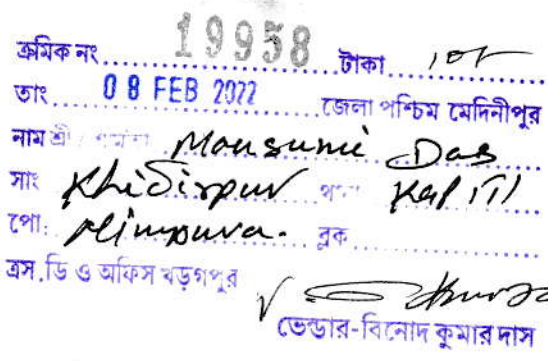 ক্রমিক নং 19958 টাকা 10/-
তাং 08 FEB 2022 জেলা পশ্চিম মেদিনীপুর
নাম শ্রী / শ্রীমতী Mousumi Das
সাং Khidirpur থানা KGP (T)
পো: Nimpura. ব্লক
এস.ডি ও অফিস খড়গপুর
ভেন্ডার-বিনোদ কুমার দাস